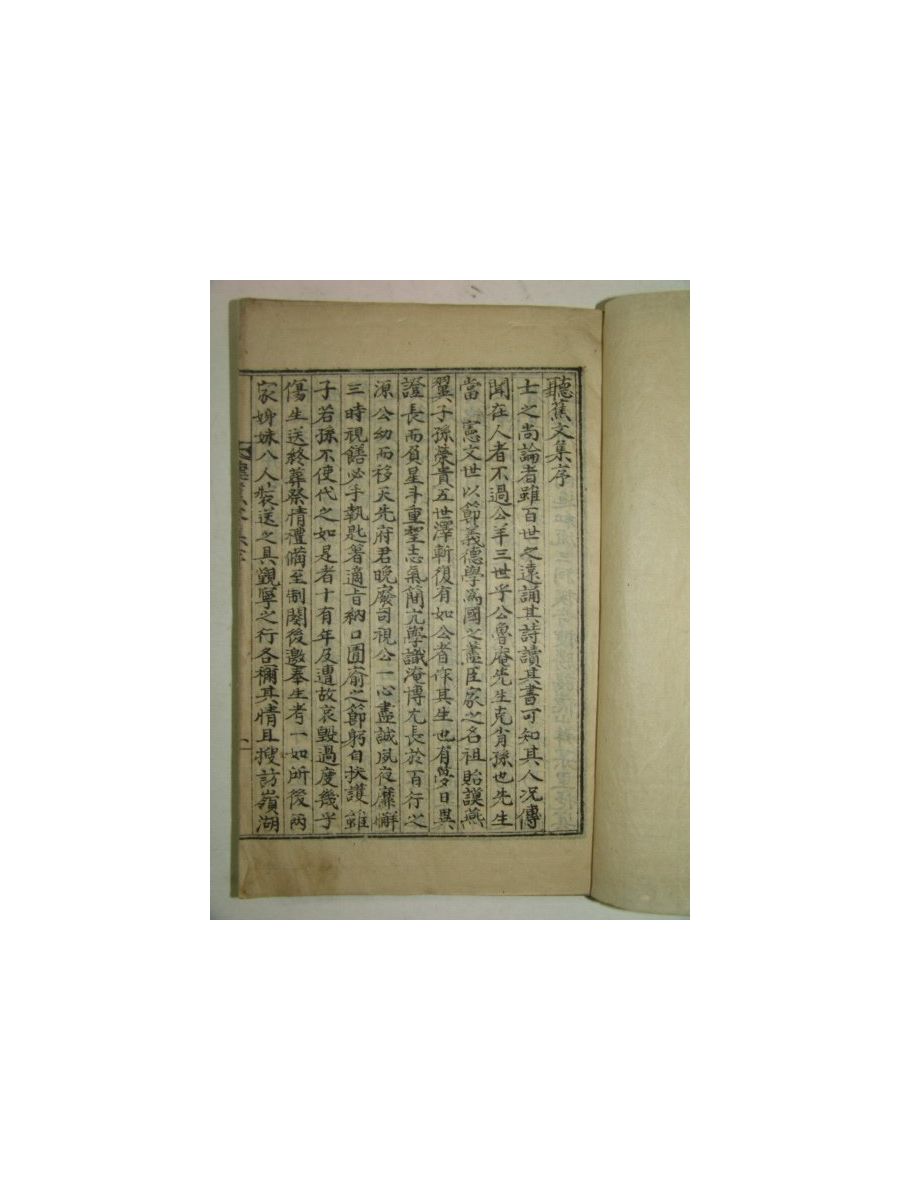 聽蕉文集序
士之尚論者雖百世之遠誦其詩讀其書可知其人况傳
聞在人者不過公羊三世乎公魯庵先生克肖孫也先生
當 憲文世以節義德學爲國之藎臣家之名祖貽謨燕
翼子孫榮貴五世澤斬復有如公者作其生也有夢日異
證長而負星斗重望志氣簡亢學識淹博尤長於百行之
源公幼而移天先府君晚廢司視公一心盡誠夙夜靡懈
三時視饍必手執匙箸適旨納口圊牏之節躬自扶護雖
子若孫不使代之如是者十有年及遭故哀毀過度幾乎
傷生送終葬祭情禮備至制闋後邀奉生考一如所後兩
家姊妹八人裝送之具觀寧之行各稱其情且搜訪嶺湖
聽蕉文集序 一